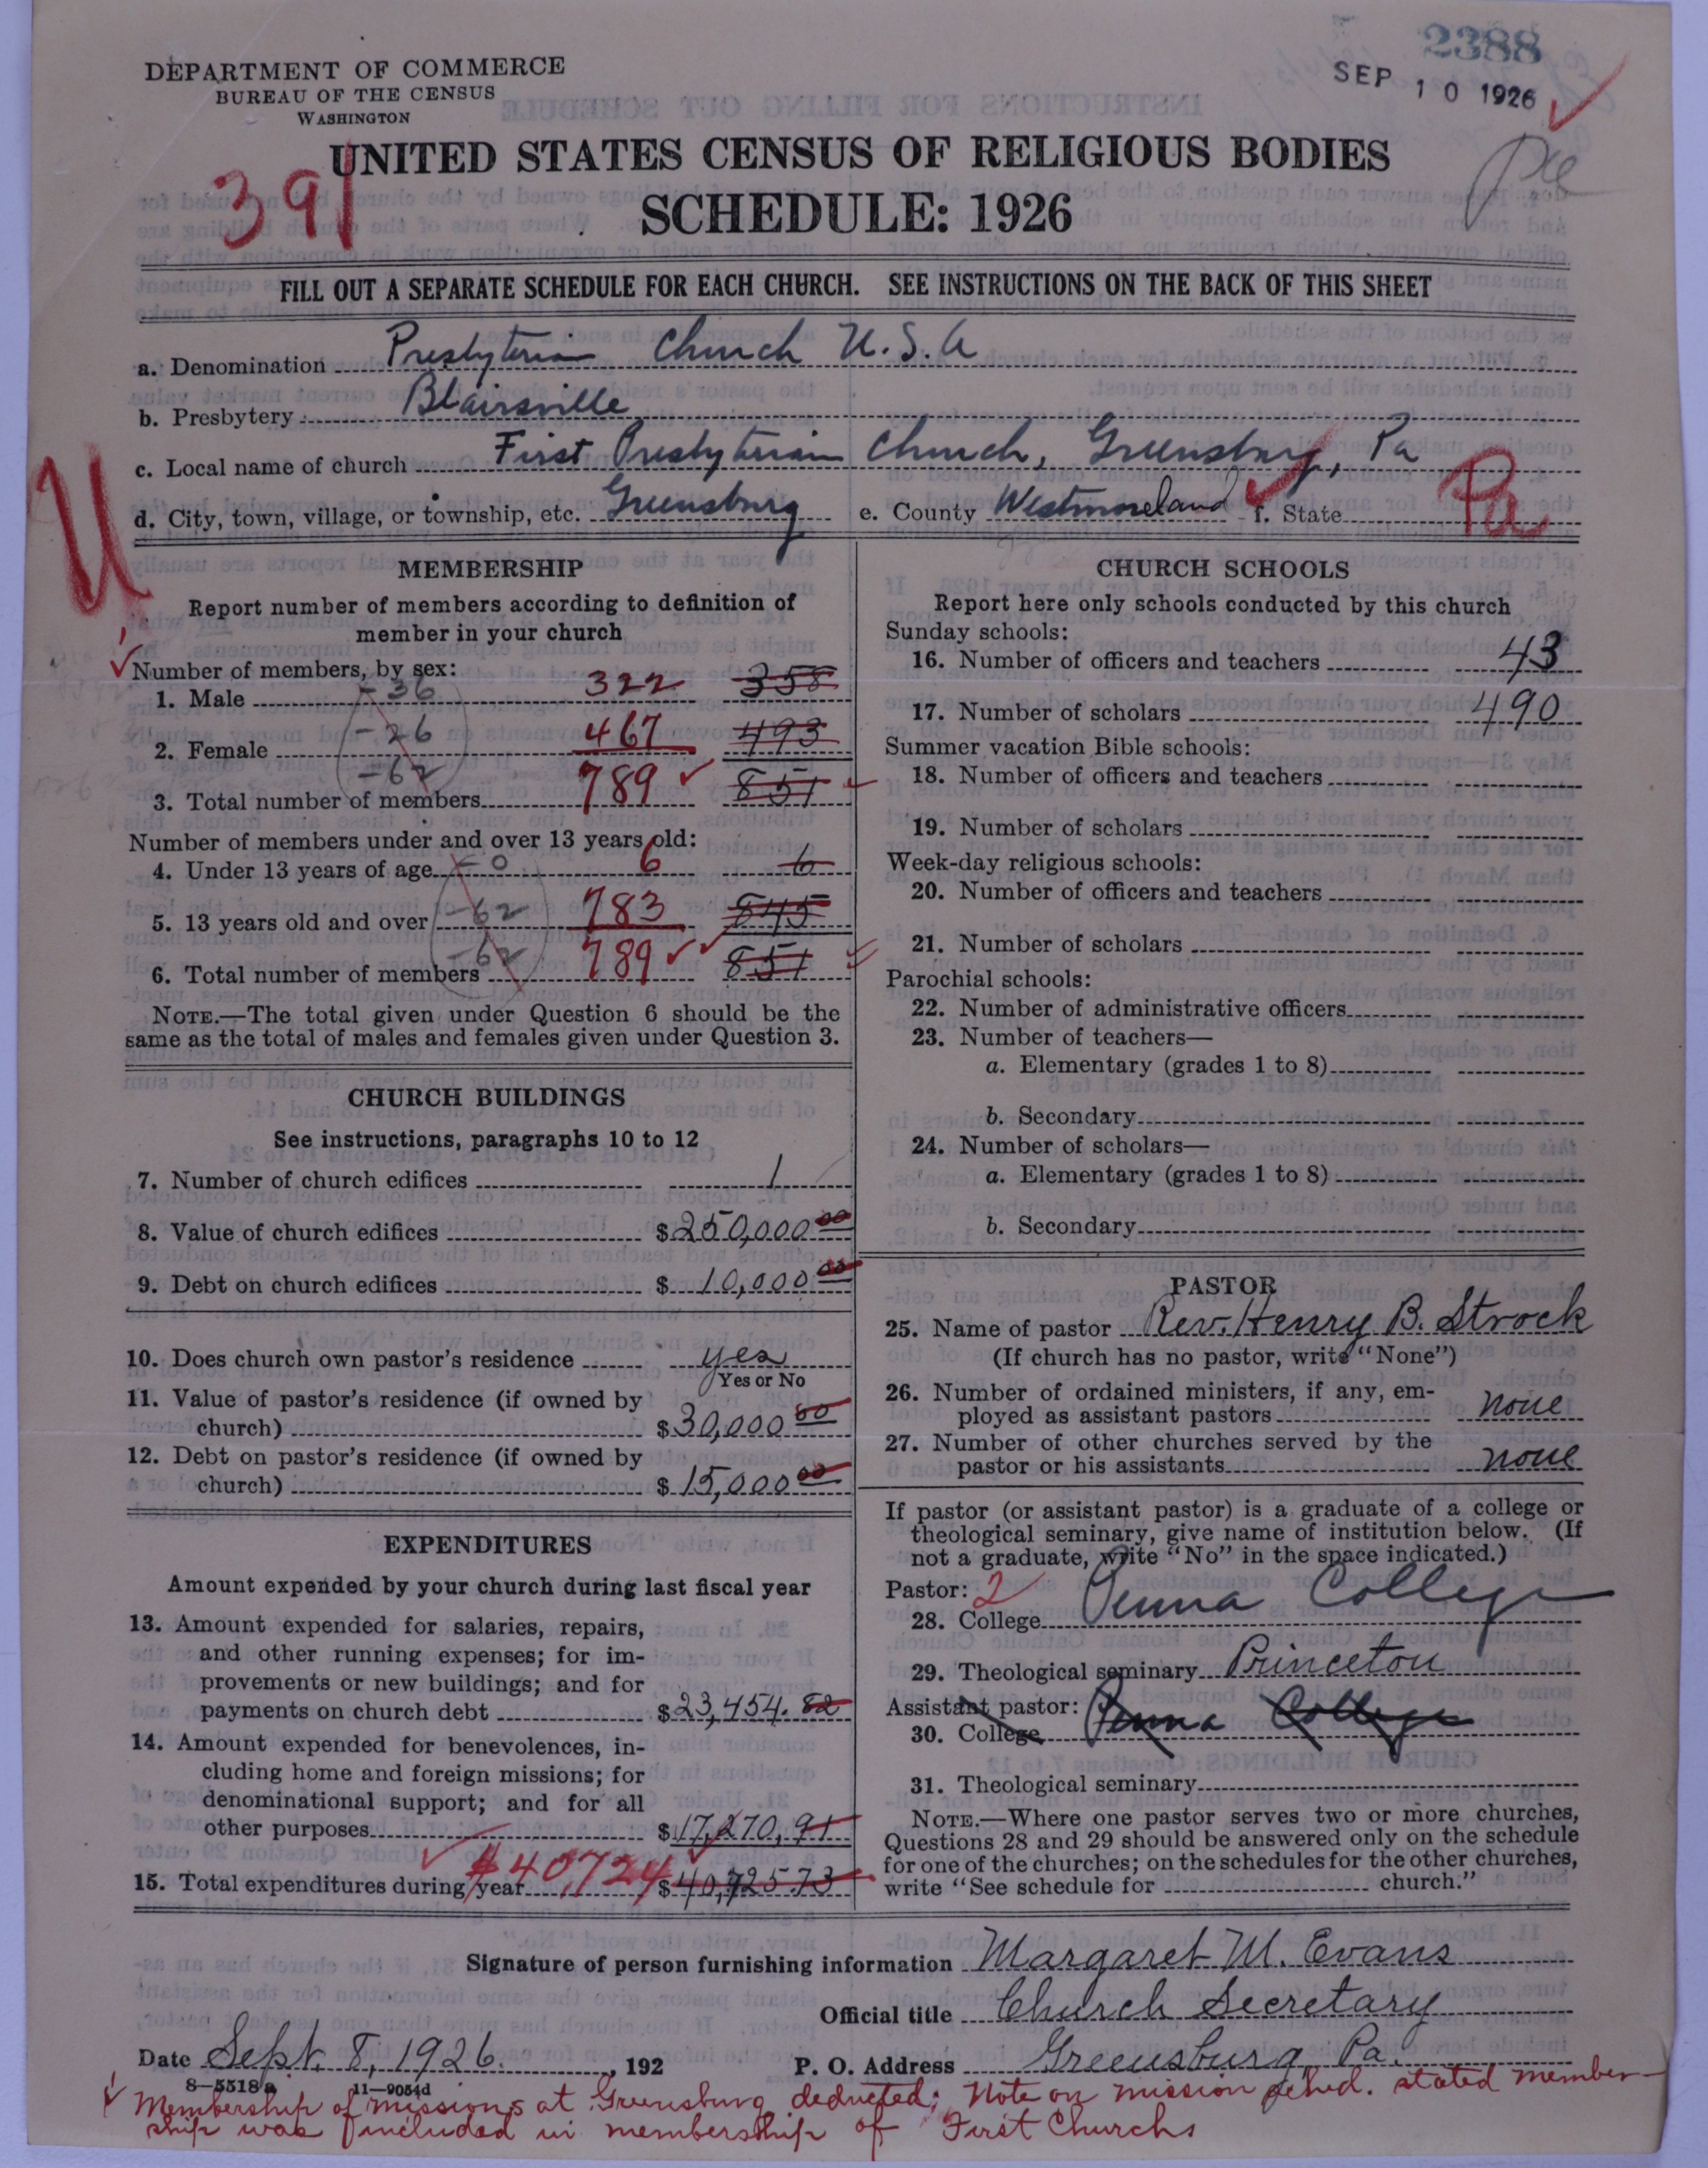 2388
SEP 10 1926
DEPARTMENT OF COMMERCE
BUREAU OF THE CENSUS
WASHINGTON
391
UNITED STATES CENSUS OF RELIGIOUS BODIES
SCHEDULE: 1926
FILL OUT A SEPARATE SCHEDULE FOR EACH CHURCH. SEE INSTRUCTIONS ON THE BACK OF THIS SHEET
a. Denomination Presbyterian Church U.S.A
b. Presbytery Blairsville
c. Local name of church First Presbyterian Church, Greensburg, Pa
d. City, town, village, or township, etc. Greensburg e. County Westmoreland f. State Pa
U
MEMBERSHIP
Report number of members according to definition of
member in your church
Number of members, by sex:
1. Male -36 322 358
2. Female -26 467 493
3. Total number of members -62 789 851
Number of members under and over 13 years old:
4. Under 13 years of age -0 6 6
5. 13 years old and over -62 783 845
6. Total number of members -62 789 851
NOTE.—The total given under Question 6 should be the
same as the total of males and females given under Question 3.
CHURCH BUILDINGS
See instructions, paragraphs 10 to 12
7. Number of church edifices 1
8. Value of church edifices $250,000 00
9. Debt on church edifices $10,000 00
10. Does church own pastor's residence yes
Yes or No
11. Value of pastor's residence (if owned by
church) $30,000 00
12. Debt on pastor's residence (if owned by
church) $15,000 00
EXPENDITURES
Amount expended by your church during last fiscal year
13. Amount expended for salaries, repairs,
and other running expenses; for im-
provements or new buildings; and for
payments on church debt $23,454.82
14. Amount expended for benevolences, in-
cluding home and foreign missions; for
denominational support; and for all
other purposes $17,270,91
15. Total expenditures during year $40,724 $40,725.73
CHURCH SCHOOLS
Report here only schools conducted by this church
Sunday schools:
16. Number of officers and teachers 43
17. Number of scholars 490
Summer vacation Bible schools:
18. Number of officers and teachers
19. Number of scholars
Week-day religious schools:
20. Number of officers and teachers
21. Number of scholars
Parochial schools:
22. Number of administrative officers
23. Number of teachers—
a. Elementary (grades 1 to 8)
b. Secondary
24. Number of scholars—
a. Elementary (grades 1 to 8)
b. Secondary
PASTOR
25. Name of pastor Rev. Henry B. Strock
(If church has no pastor, write "None")
26. Number of ordained ministers, if any, em-
ployed as assistant pastors none
27. Number of other churches served by the
pastor or his assistants none
If pastor (or assistant pastor) is a graduate of a college or
theological seminary, give name of institution below. (If
not a graduate, write "No" in the space indicated.)
Pastor: 2
28. College Penna College
29. Theological seminary Princeton
Assistant pastor:
30. College Penna College
31. Theological seminary
NOTE.—Where one pastor serves two or more churches,
Questions 28 and 29 should be answered only on the schedule
for one of the churches; on the schedules for the other churches,
write "See schedule for church."
Signature of person furnishing information Margaret M. Evans
Official title Church Secretary
Date Sept. 8, 1926. , 192 P. O. Address Greensburg, Pa.
8—5518a 11—9054d
Membership of missions at Greensburg deducted; Note on mission sched. stated member-
ship was included in membership of First Church